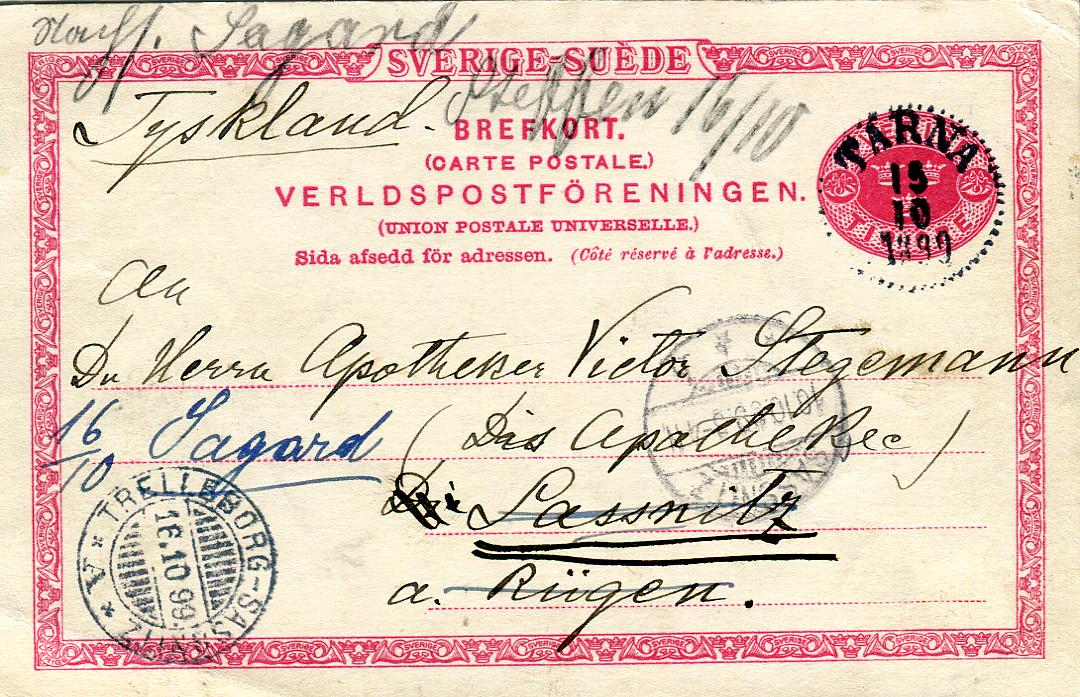 Nach Sagard
SVERIGE-SUÈDE
Steffen 16/10
Tyskland.
BREFKORT.
(CARTE POSTALE.)
VERLDSPOSTFÖRENINGEN.
(UNION POSTALE UNIVERSELLE.)
Sida afsedd för adressen. (Côté réservé à l'adresse.)
TÄRNA
15
10
1899
An
Herrn Apotheker Victor Stegemann
16/10 Sagard (Die Apotheke)
Sassnitz
a. Rügen.
TRELLEBORG-SASSNITZ
16.10 99
* V *
SASSNITZ